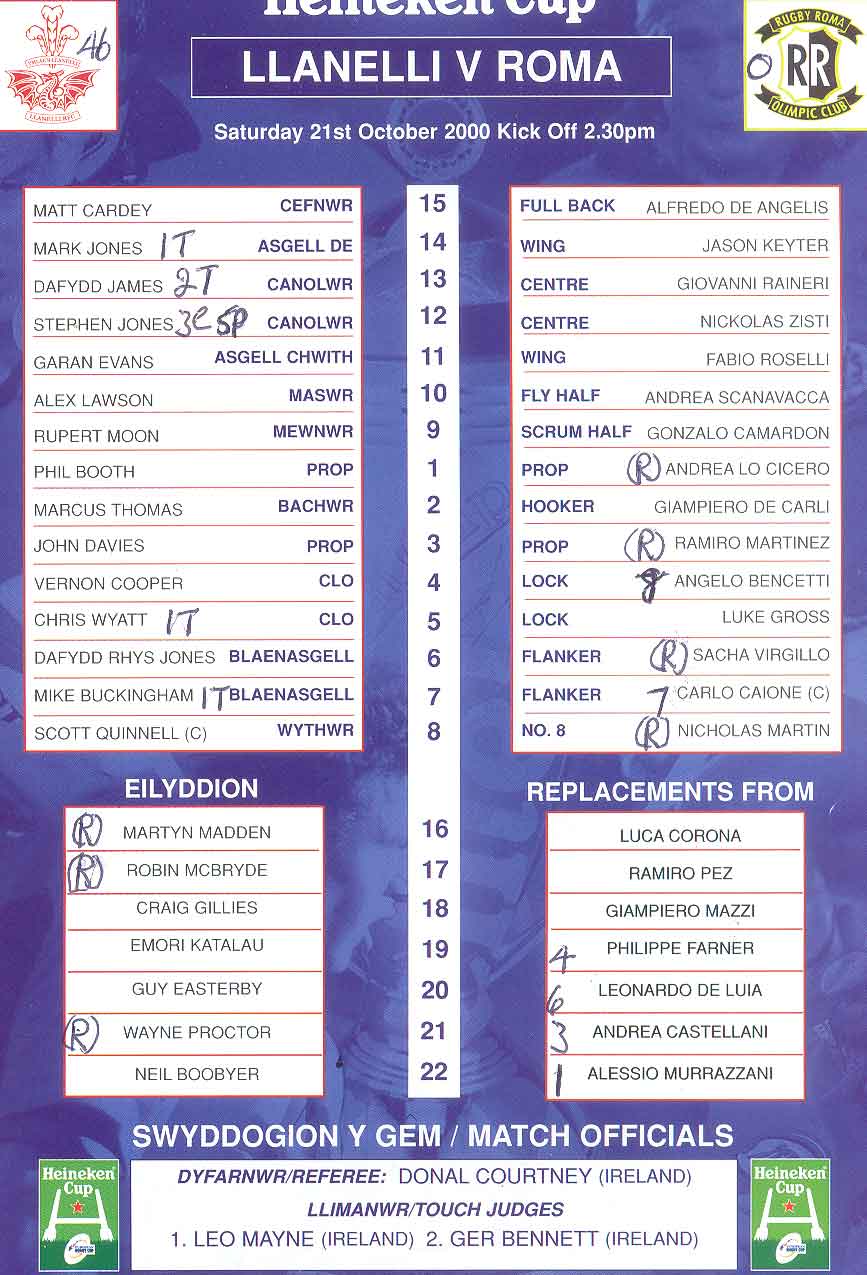 Heineken Cup
46
LLANELLI RFC
LLANELLI V ROMA
RUGBY ROMA
O RR
OLIMPIC CLUB
Saturday 21st October 2000 Kick Off 2.30pm
MATT CARDEY CEFNWR 15 FULL BACK ALFREDO DE ANGELIS
MARK JONES 1T ASGELL DE 14 WING JASON KEYTER
DAFYDD JAMES 2T CANOLWR 13 CENTRE GIOVANNI RAINERI
STEPHEN JONES 3C 5P CANOLWR 12 CENTRE NICKOLAS ZISTI
GARAN EVANS ASGELL CHWITH 11 WING FABIO ROSELLI
ALEX LAWSON MASWR 10 FLY HALF ANDREA SCANAVACCA
RUPERT MOON MEWNWR 9 SCRUM HALF GONZALO CAMARDON
PHIL BOOTH PROP 1 PROP (R) ANDREA LO CICERO
MARCUS THOMAS BACHWR 2 HOOKER GIAMPIERO DE CARLI
JOHN DAVIES PROP 3 PROP (R) RAMIRO MARTINEZ
VERNON COOPER CLO 4 LOCK 8 ANGELO BENCETTI
CHRIS WYATT 1T CLO 5 LOCK LUKE GROSS
DAFYDD RHYS JONES BLAENASGELL 6 FLANKER (R) SACHA VIRGILLO
MIKE BUCKINGHAM 1T BLAENASGELL 7 FLANKER 7 CARLO CAIONE (C)
SCOTT QUINNELL (C) WYTHWR 8 NO. 8 (R) NICHOLAS MARTIN
EILYDDION REPLACEMENTS FROM
(R) MARTYN MADDEN 16 LUCA CORONA
(R) ROBIN MCBRYDE 17 RAMIRO PEZ
CRAIG GILLIES 18 GIAMPIERO MAZZI
EMORI KATALAU 19 4 PHILIPPE FARNER
GUY EASTERBY 20 6 LEONARDO DE LUIA
(R) WAYNE PROCTOR 21 3 ANDREA CASTELLANI
NEIL BOOBYER 22 1 ALESSIO MURRAZZANI
SWYDDOGION Y GEM / MATCH OFFICIALS
Heineken Cup
DYFARNWR/REFEREE: DONAL COURTNEY (IRELAND)
LLIMANWR/TOUCH JUDGES
1. LEO MAYNE (IRELAND) 2. GER BENNETT (IRELAND)
Heineken Cup